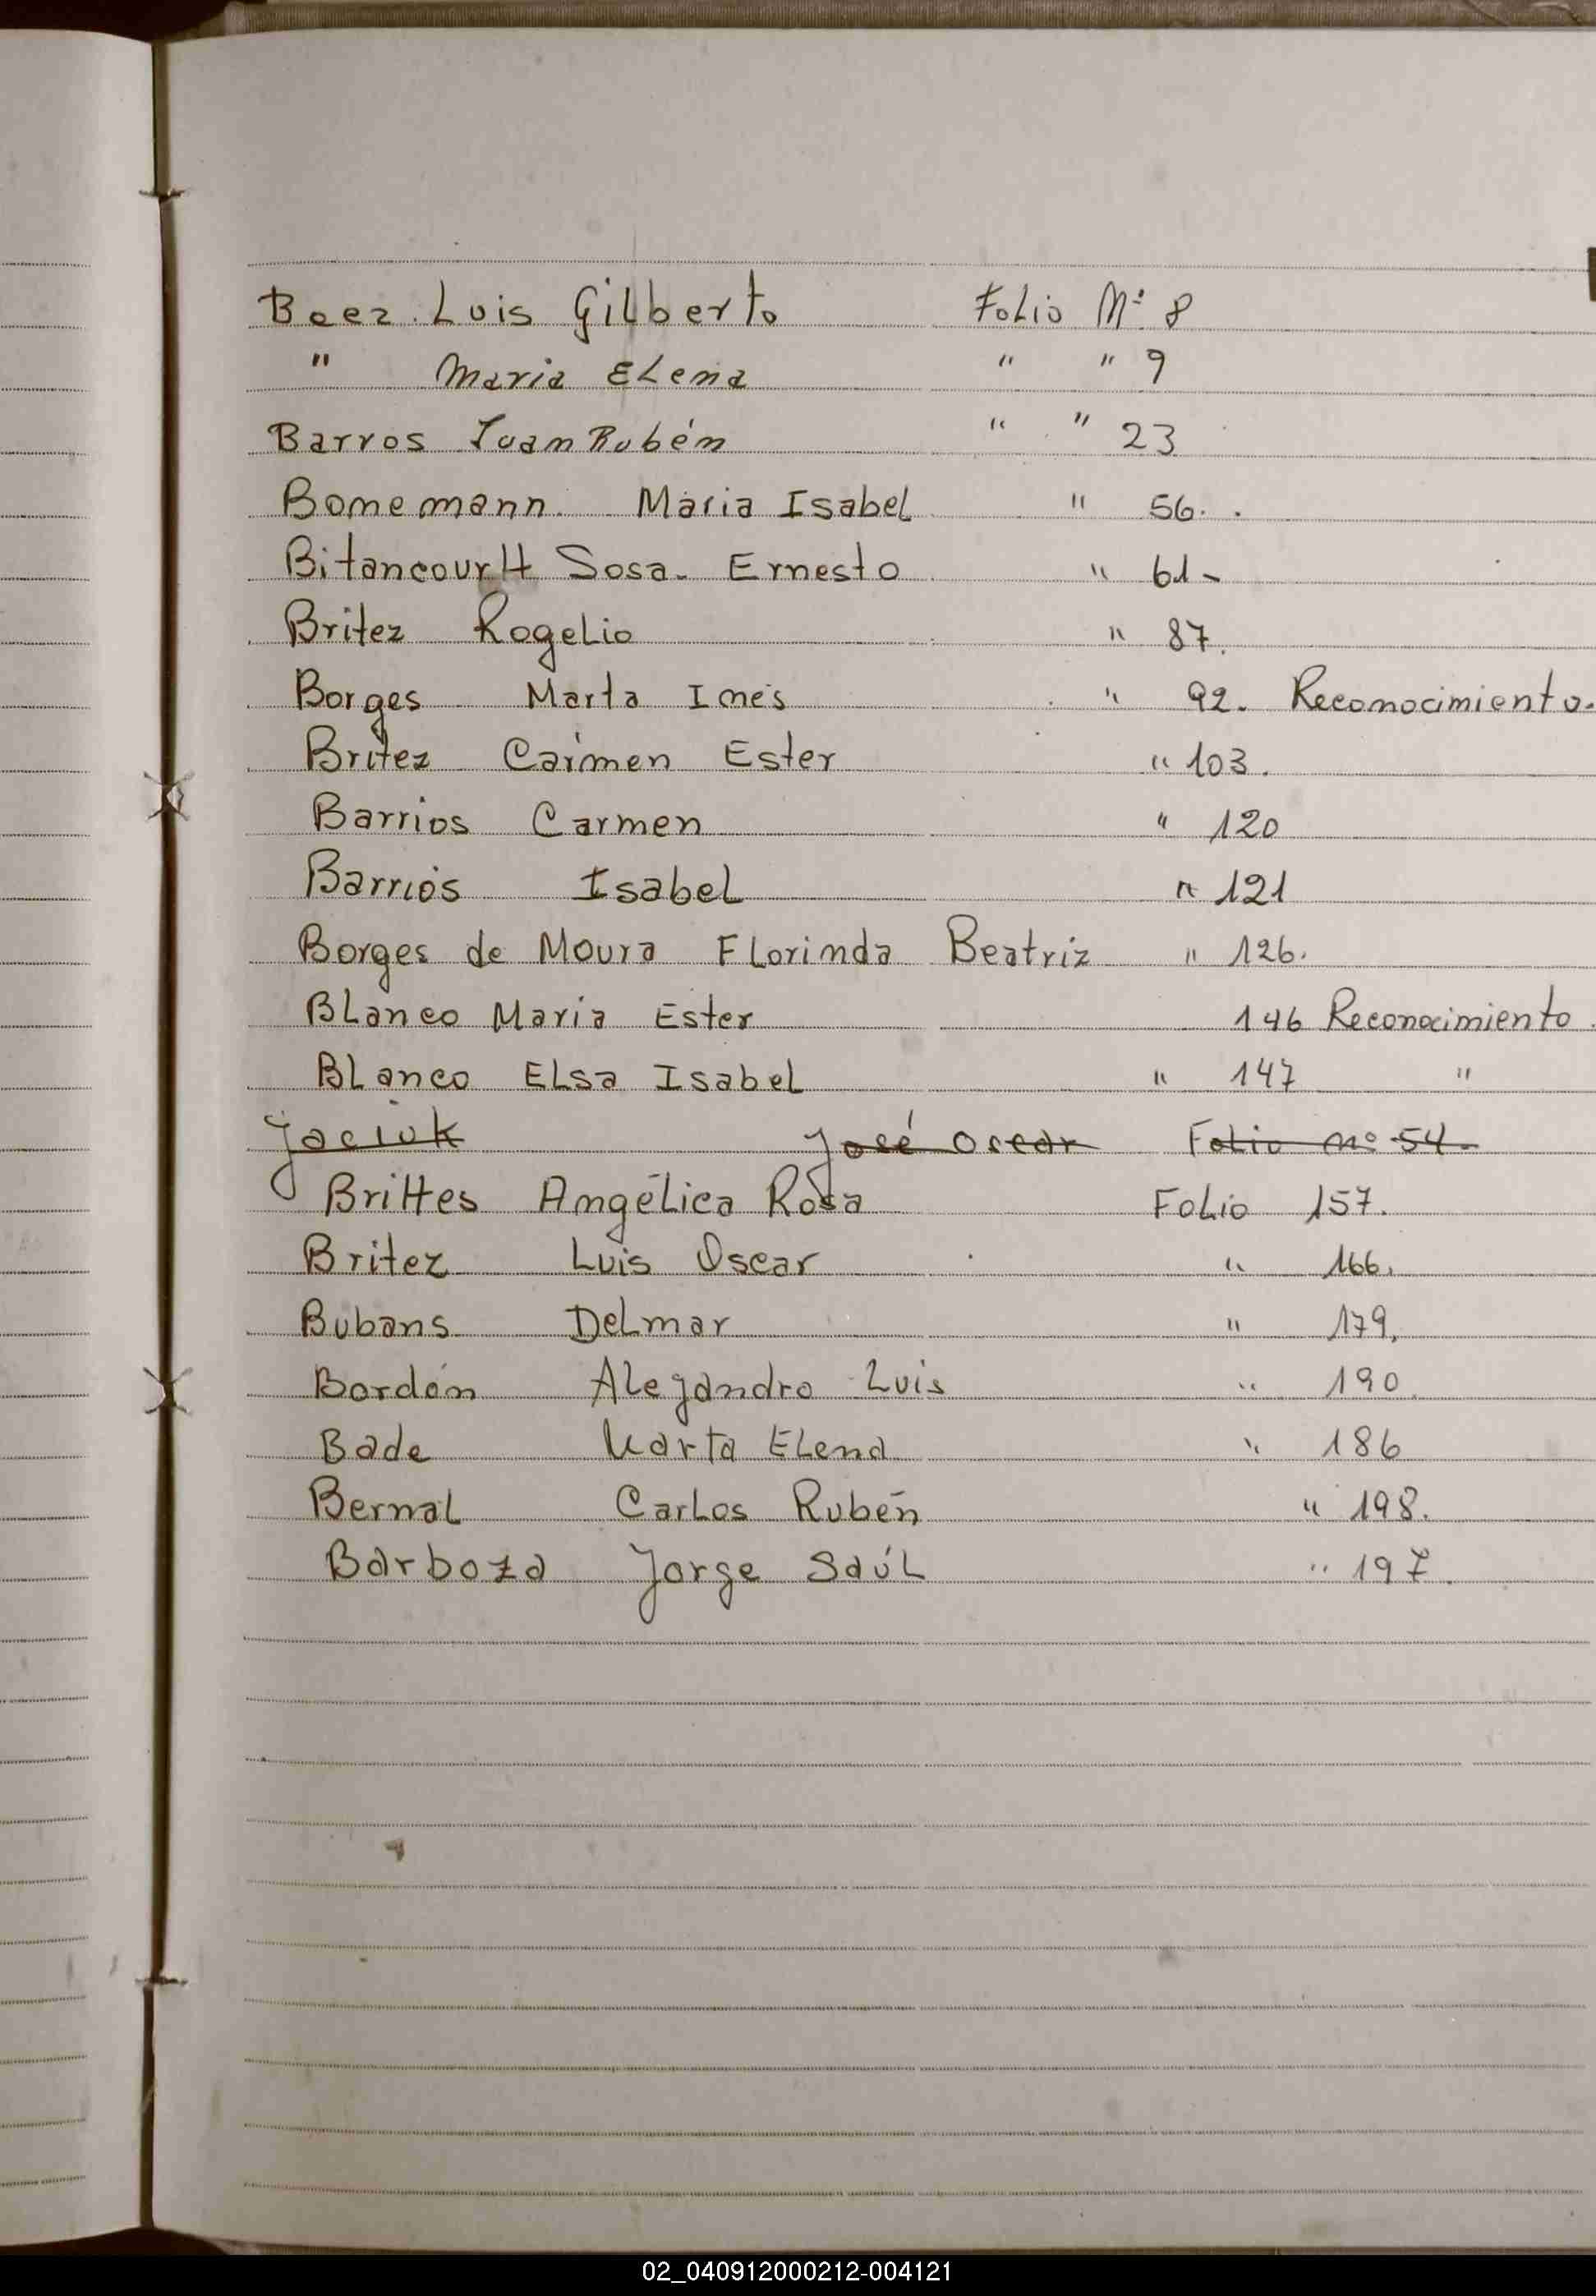 Baez Luis Gilberto Folio Nº 8
" Maria Elena " " 9
Barros Juan Rubén " " 23
Bornemann. Maria Isabel " 56.
Bitancourtt Sosa. Ernesto " 61-
Britez Rogelio " 87.
Borges Marta Inés " 92. Reconocimiento.
Britez Carmen Ester " 103.
Barrios Carmen " 120
Barrios Isabel " 121
Borges de Moura Florinda Beatriz " 126.
Blanco Maria Ester 146 Reconocimiento.
Blanco Elsa Isabel " 147 "
Jaciuk José Oscar Folio nº 54.
Brittes Angélica Rosa Folio 157.
Britez Luis Oscar " 166.
Bubans Delmar " 179.
Bordón Alejandro Luis " 190.
Bade Marta Elena " 186
Bernal Carlos Rubén " 198.
Barboza Jorge Saúl " 197.
02_040912000212-004121